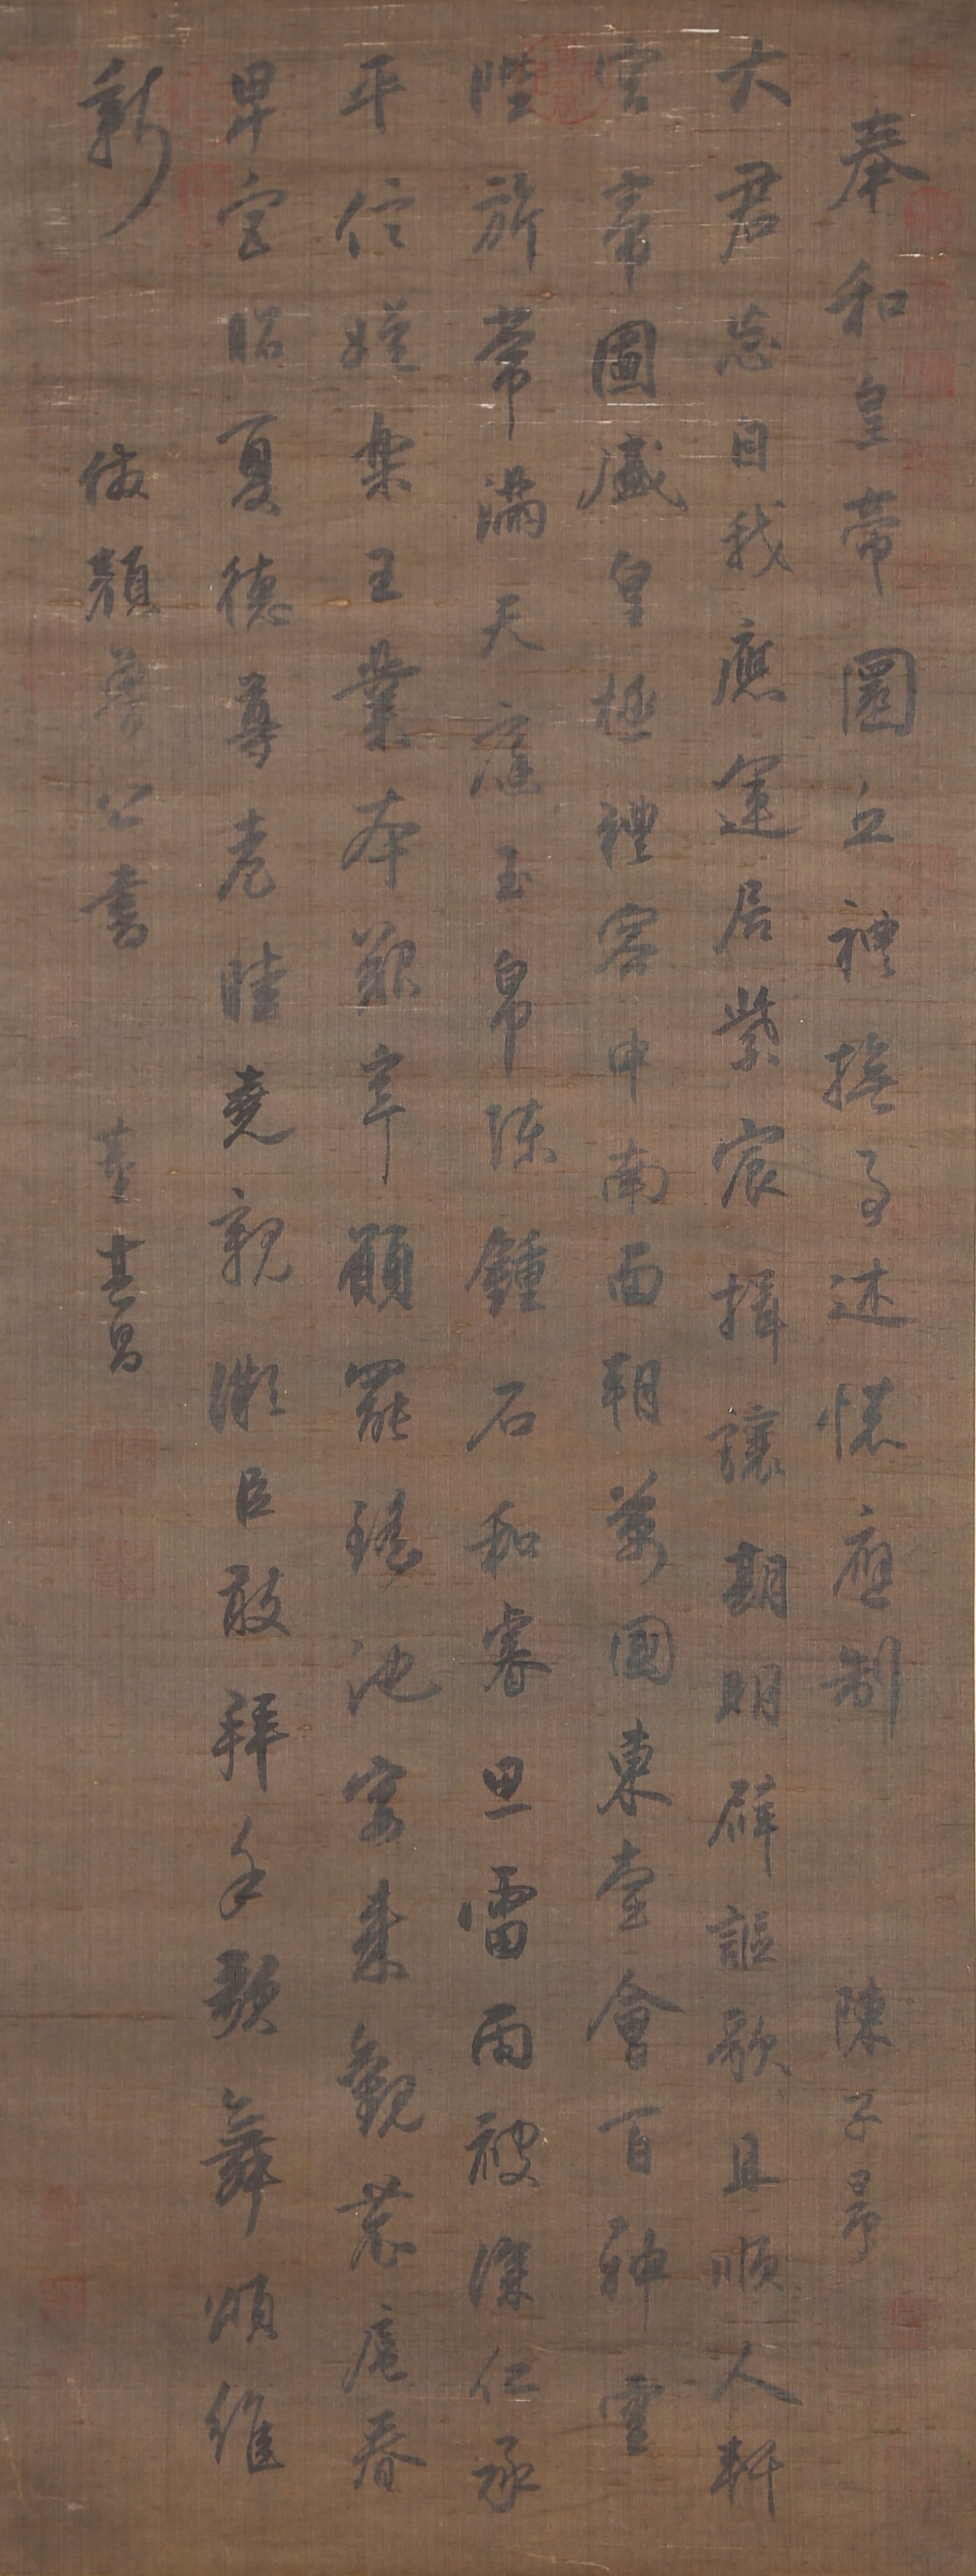 奉和皇帝圜丘禮撫事述懷應制 陳子昂
大君忘自我應運居紫宸揖讓期明辟謳歌且順人軒
宮帝圖盛皇極禮容申南面朝萬國東堂會百神雲
陛旂常滿天庭玉帛陳鍾石和睿思雷雨被深仁承
平信娛樂王業本艱辛願罷瑤池宴來觀農扈春
卑宮昭夏德尊老睦堯親微臣敢拜手歌舞頌維
新 倣顏魯公書 董其昌